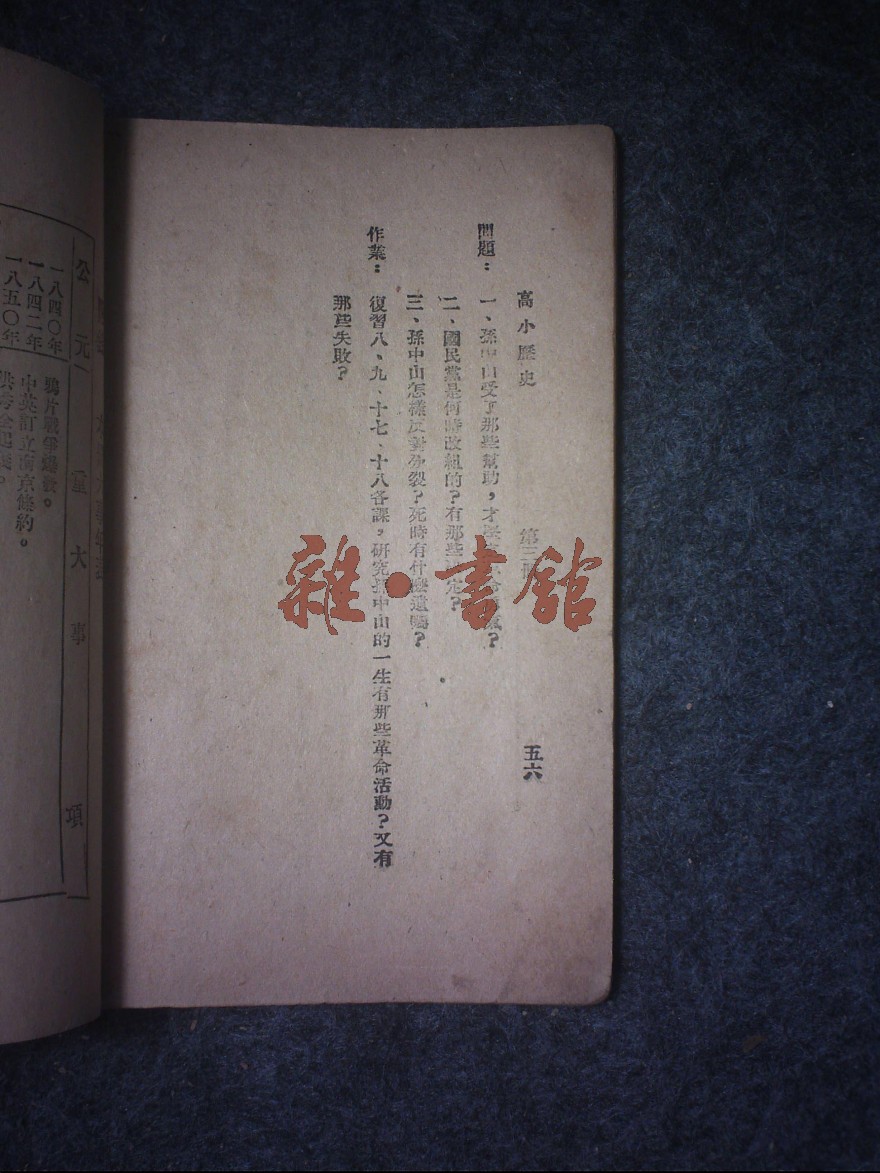 高小歷史 第三冊 五六
問題：
一、孫中山受了那些幫助，才
二、國民黨是何時改組的？有那些決定？
三、孫中山怎樣反對分裂？死時有什麼遺囑？
作業：
復習八、九、十七、十八各課，研究孫中山的一生有那些革命活動？又有
那些失敗？
雜·書館
公元
重大事項
一八四〇年
鴉片戰爭爆發。
一八四二年
中英訂立南京條約。
一八五〇年